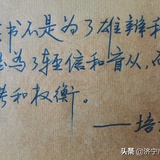 书不是为了雄辩和
是为了轻信和盲从，而
考和权衡。
——培
头条 @济宁